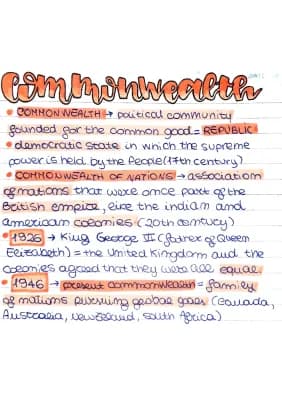 Commonwealth
• COMMONWEALTH → political community
founded for the common good = REPUBLIC
• democratic state in which the supreme
power is held by the People (17th century)
• COMMONWEALTH OF NATIONS → association
of nations that were once part of the
British empire, like the indian and
american colonies (20th century)
• 1926 → King George V (father of Queen
Elizabeth) = the United Kingdom and the
colonies agreed that they were all equal
• 1946 → present commonwealth = family
of nations pursuing global goals (Canada,
Australia, new zeland, south Africa)